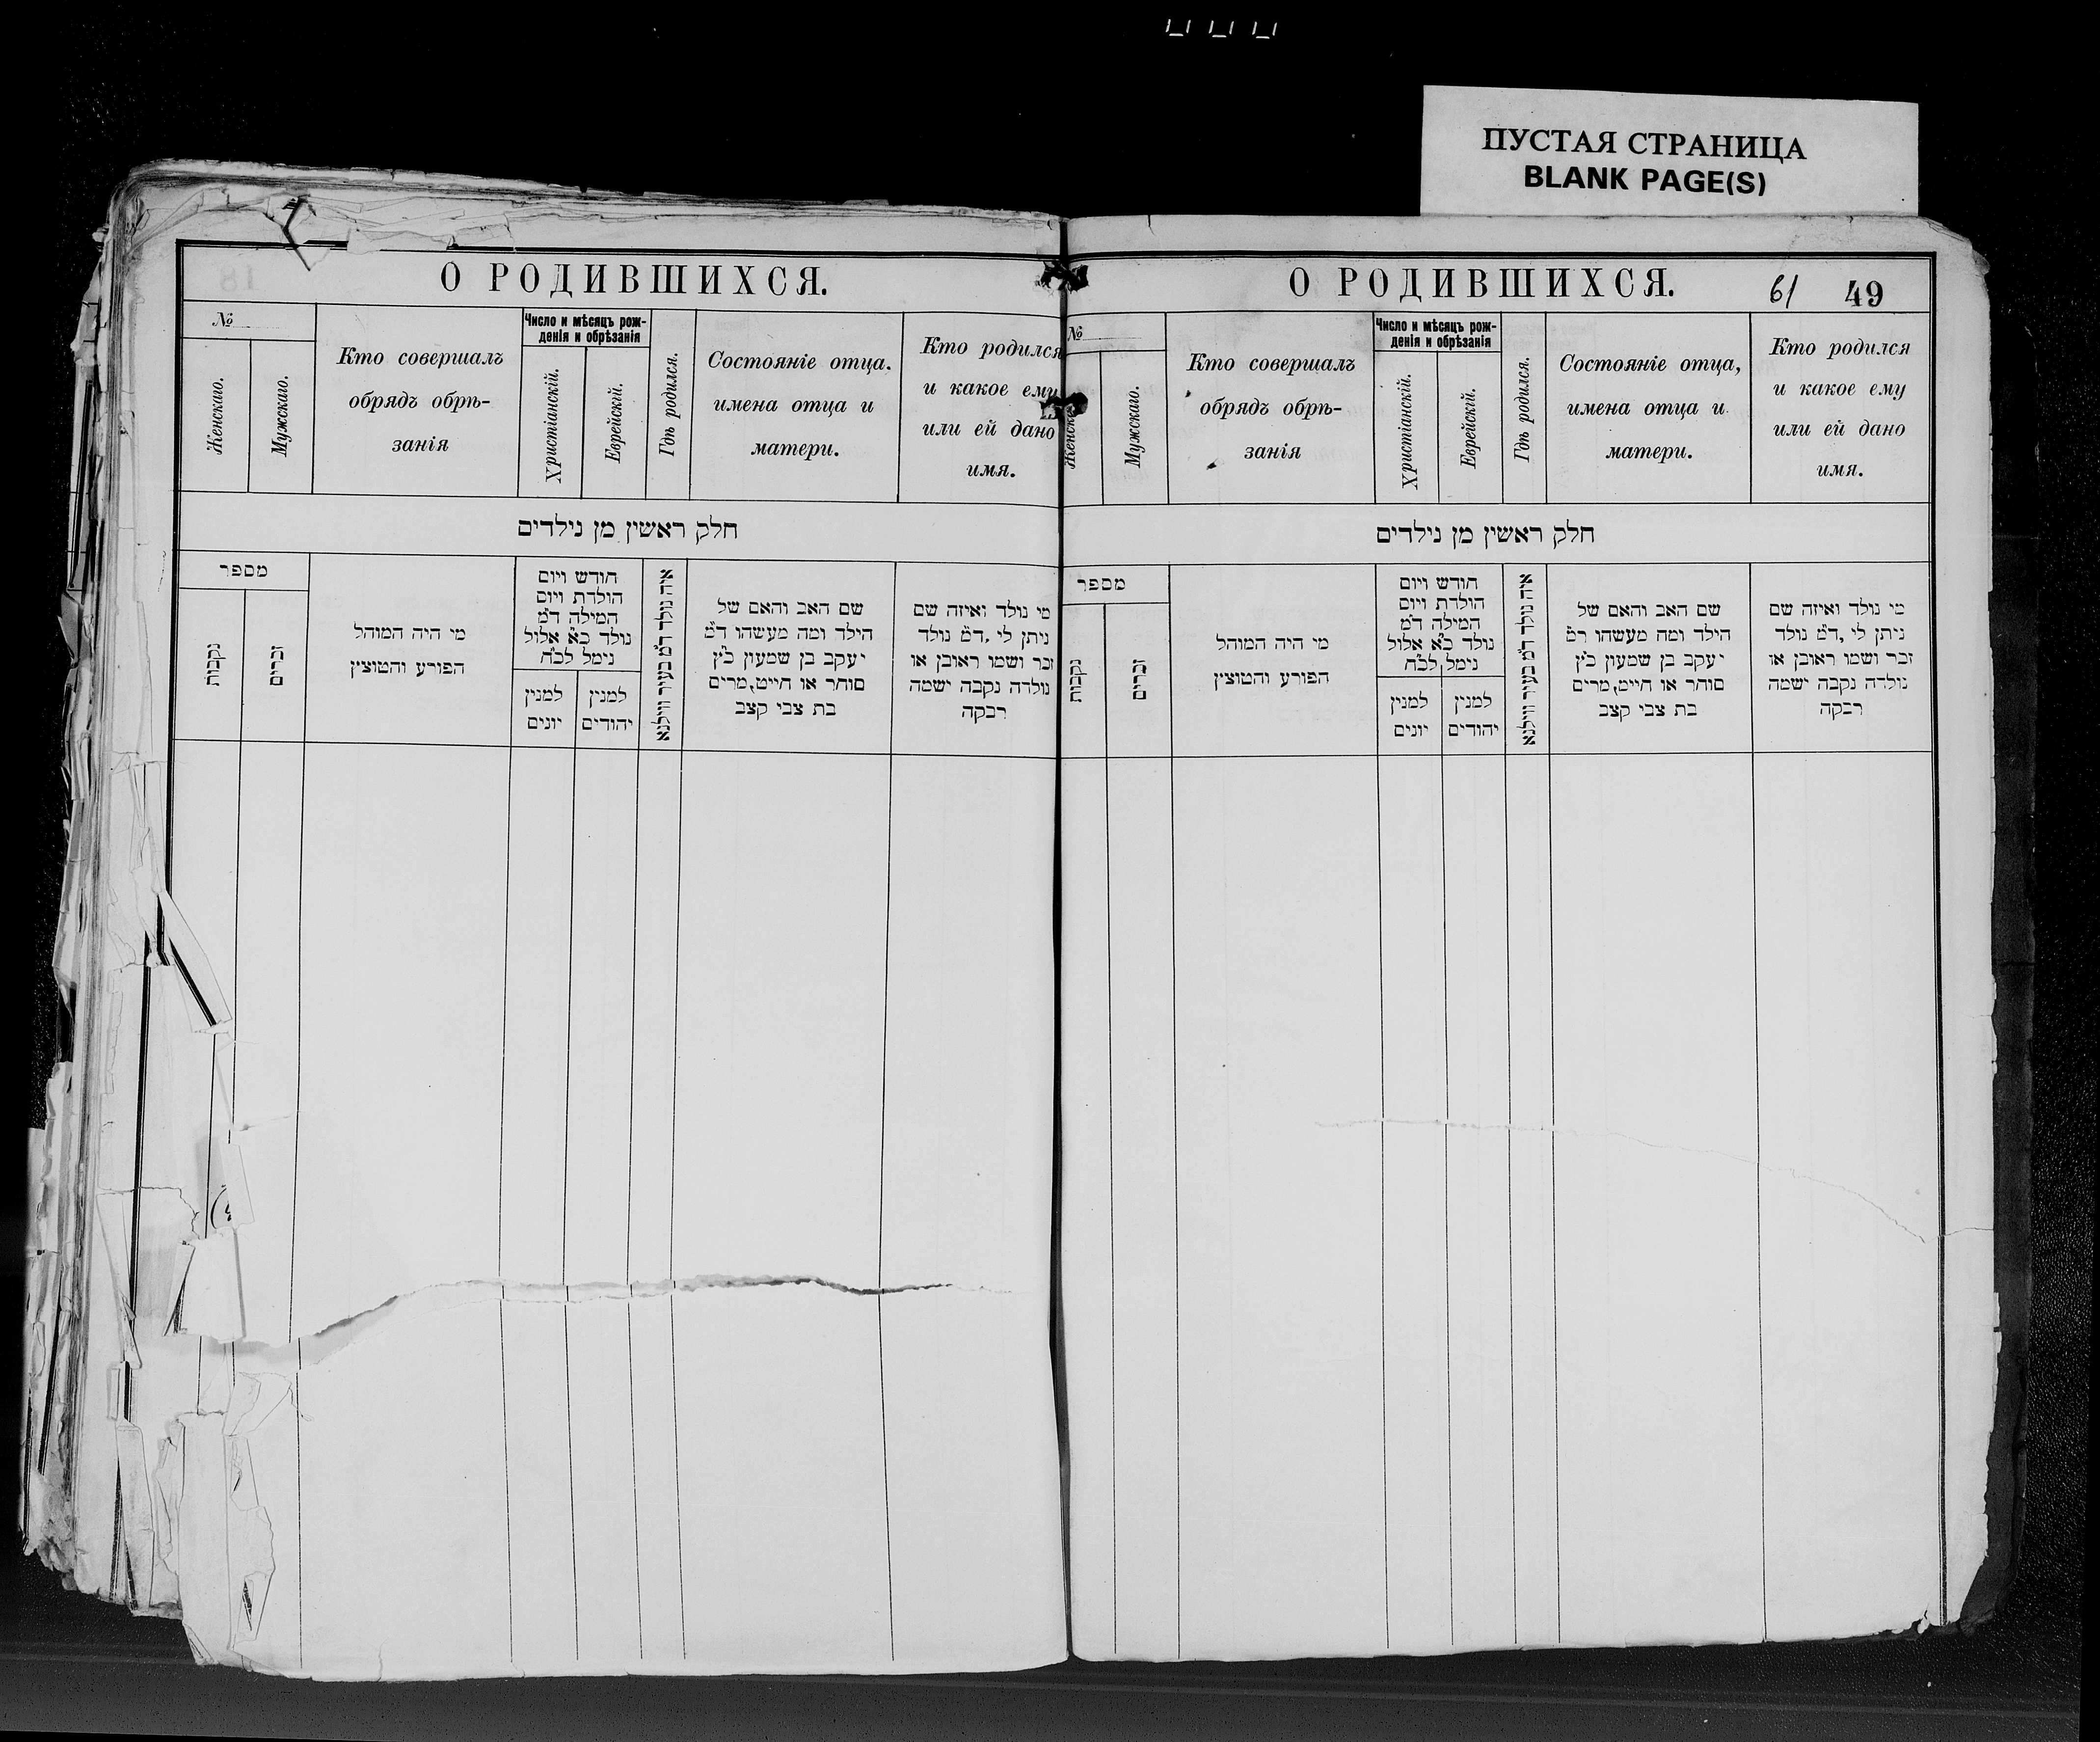 ПУСТАЯ СТРАНИЦА
BLANK PAGE(S)
О РОДИВШИХСЯ.
№
Женскаго.
Мужскаго.
Кто совершалъ
обрядъ обрѣ-
занія
Число и мѣсяцъ рож-
денія и обрѣзанія
Христіанскій.
Еврейскій.
Гдѣ родился.
Состояніе отца.
имена отца и
матери.
Кто родился
и какое ему
или ей дано
имя.
חלק ראשין מן נילדים
מספר
נקבות
זכרים
מי היה המוהל
הפורע והמוצץ
חודש ויום
הולדת ויום
המילה ד״מ
נולד כ״א אלול
נימל לכ״ח
למנין
יונים
למנין
יהודים
איה נולד ד״מ בעיר ווילנא
שם האב והאם של
הילד ומה מעשהו ד״מ
יעקב בן שמעון כ״ץ
סוחר או חייט,מרים
בת צבי קצב
מי נולד ואיזה שם
ניתן לי ,ד״מ נולד
זכר ושמו ראובן או
נולדה נקבה ישמה
רבקה
О РОДИВШИХСЯ.
61 49
№
Женскаго
Мужскаго.
Кто совершалъ
обрядъ обрѣ-
занія
Число и мѣсяцъ рож-
денія и обрѣзанія
Христіанскій.
Еврейскій.
Гдѣ родился.
Состояніе отца,
имена отца и
матери.
Кто родился
и какое ему
или ей дано
имя.
חלק ראשין מן נילדים
מספר
נקבות
זכרים
מי היה המוהל
הפורע והמוצץ
חודש ויום
הולדת ויום
המילה ד״מ
נולד כ״א אלול
נימל לכ״ח
למנין
יונים
למנין
יהודים
איה נולד ד״מ בעיר ווילנא
שם האב והאם של
הילד ומה מעשהו ד״מ
יעקב בן שמעון כ״ץ
סוחר או חייט,מרים
בת צבי קצב
מי נולד ואיזה שם
ניתן לי ,ד״מ נולד
זכר ושמו ראובן או
נולדה נקבה ישמה
רבקה